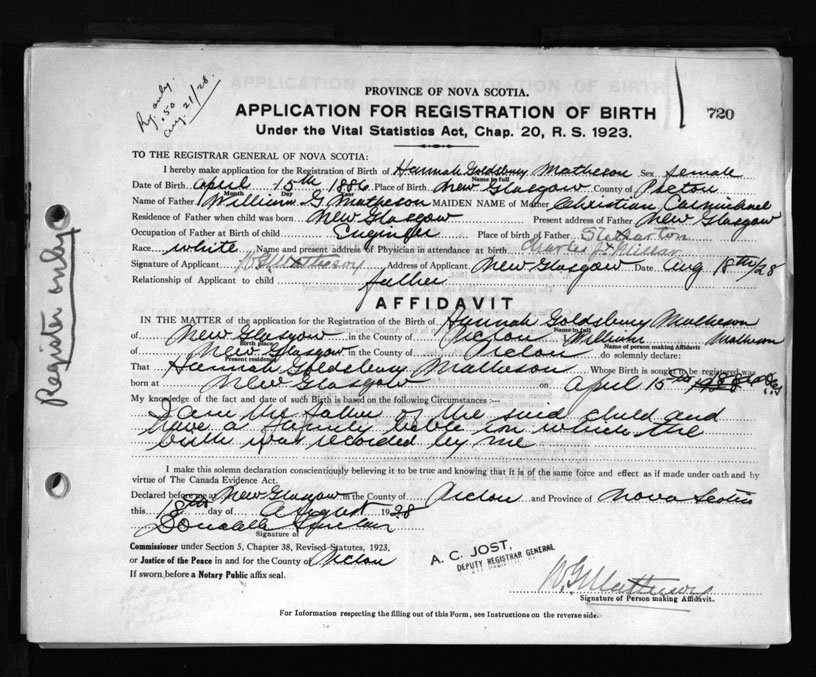 Rg. only.
.50
Aug. 21/28.
PROVINCE OF NOVA SCOTIA.
APPLICATION FOR REGISTRATION OF BIRTH
720
Under the Vital Statistics Act, Chap. 20, R. S. 1923.
TO THE REGISTRAR GENERAL OF NOVA SCOTIA:
I hereby make application for the Registration of Birth of Hannah Goldsbury Matheson Sex female
Name in full
Date of Birth April 15th 1886 Place of Birth New Glasgow County of Pictou
Month Day Year
Name of Father William G Matheson MAIDEN NAME of Mother Christian Carmichael
Residence of Father when child was born New Glasgow Present address of Father New Glasgow
Occupation of Father at Birth of child Engineer Place of birth of Father Stellarton
Race white Name and present address of Physician in attendance at birth Charles J
Signature of Applicant W G Matheson Address of Applicant New Glasgow Date Aug 18th/28
Relationship of Applicant to child father
AFFIDAVIT
Register only
IN THE MATTER of the application for the Registration of the Birth of Hannah Goldsbury Matheson
Name in full
of New Glasgow in the County of Pictou William Matheson
Birth place Name of person making Affidavit
of New Glasgow in the County of Pictou do solemnly declare:
Present residence
That Hannah Goldsbury Matheson Whose Birth is sought to be registered was
born at New Glasgow on April 15th
My knowledge of the fact and date of such Birth is based on the following Circumstances :—
I am the father of the said child and
have a family bible in which the
birth was recorded by me
I make this solemn declaration conscientiously believing it to be true and knowing that it is of the same force and effect as if made under oath and by
virtue of The Canada Evidence Act.
Declared before me at New Glasgow in the County of Pictou and Province of Nova Scotia
this 18th day of August 1928
Donald
Signature of
Commissioner under Section 5, Chapter 38, Revised Statutes, 1923,
or Justice of the Peace in and for the County of Pictou
If sworn before a Notary Public affix seal.
A. C. JOST,
DEPUTY REGISTRAR GENERAL
W G Matheson
Signature of Person making Affidavit.
For Information respecting the filling out of this Form, see Instructions on the reverse side.